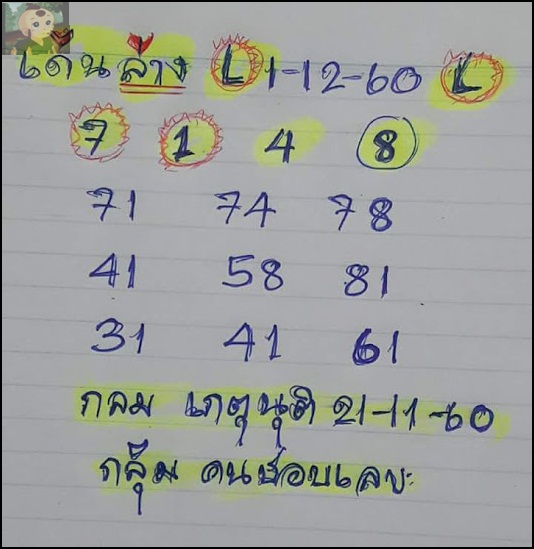 เด่นล่าง L 1-12-60 L
7 1 4 8
71 74 78
41 58 81
31 41 61
กลม เกตุนุติ 21-11-60
กลุ้ม คนชอบเลขะ